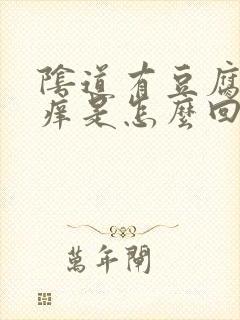 陰道有豆腐
痒是怎麼回
萬年閘